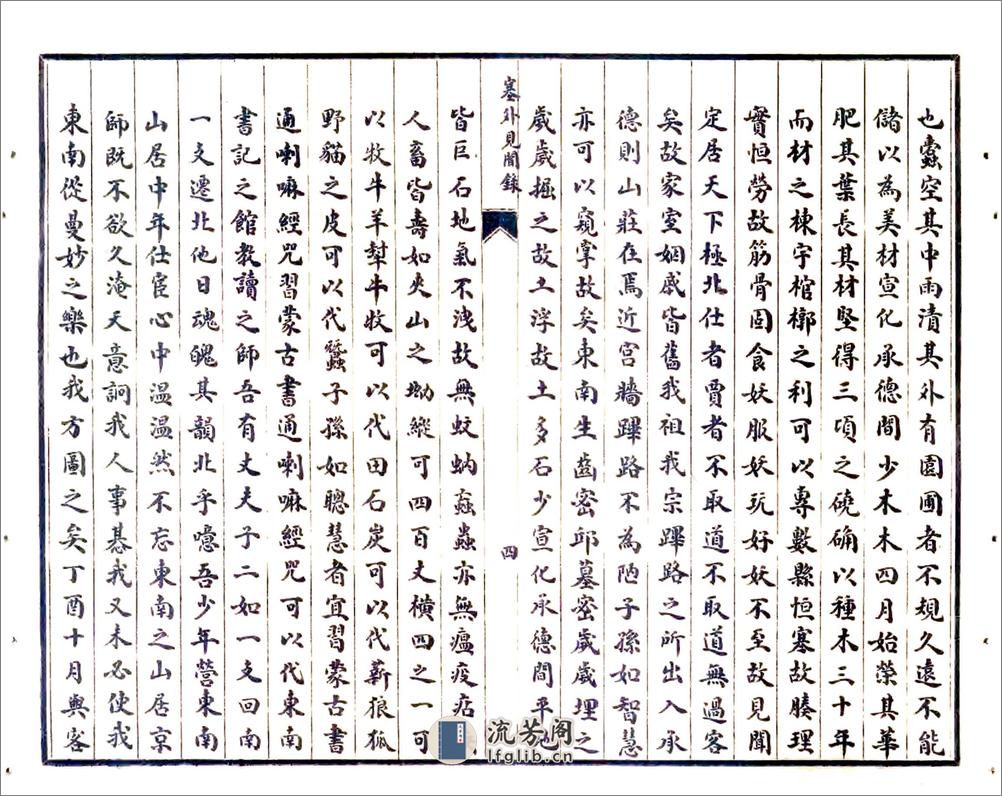 也蠹空其中雨漬其外有園圃者不規久遠不能
儲以為美材宣化承德間少木木四月始榮其華
肥其葉長其材堅得三頃之磽确以種木三十年
而材之棟宇棺槨之利可以專數縣恒塞故腠理
實恒勞故筋骨固食妖服妖玩好妖不至故見聞
定居天下極北仕者賈者不取道不取道無過客
矣故家室姻戚皆舊我祖我宗蹕路之所出入承
德則山莊在焉近宮牆蹕路不為陋子孫如智慧
亦可以窺掌故矣東南生齒密邱墓密歲歲埋之
歲歲掘之故土浮故土多石少宣化承德間平地
塞外見聞錄
四
皆巨石地氣不洩故無蚊蚋蝱蟲亦無瘟疫痁
人畜皆壽如夾山之坳縱可四百丈橫四之一可
以牧牛羊犎牛牧可以代田石炭可以代薪狼狐
野貓之皮可以代蠶子孫如聰慧者宜習蒙古書
通喇嘛經咒習蒙古書通喇嘛經咒可以代東南
書記之館教讀之師吾有丈夫子二如一支回南
一支遷北他日魂魄其韻北乎噫吾少年營東南
山居中年仕宦心中溫溫然不忘東南之山居京
師既不欲久淹天意詞我人事惎我又未必使我
東南從曼妙之樂也我方圖之矣丁酉十月與客
流芳阁
lfglib.cn